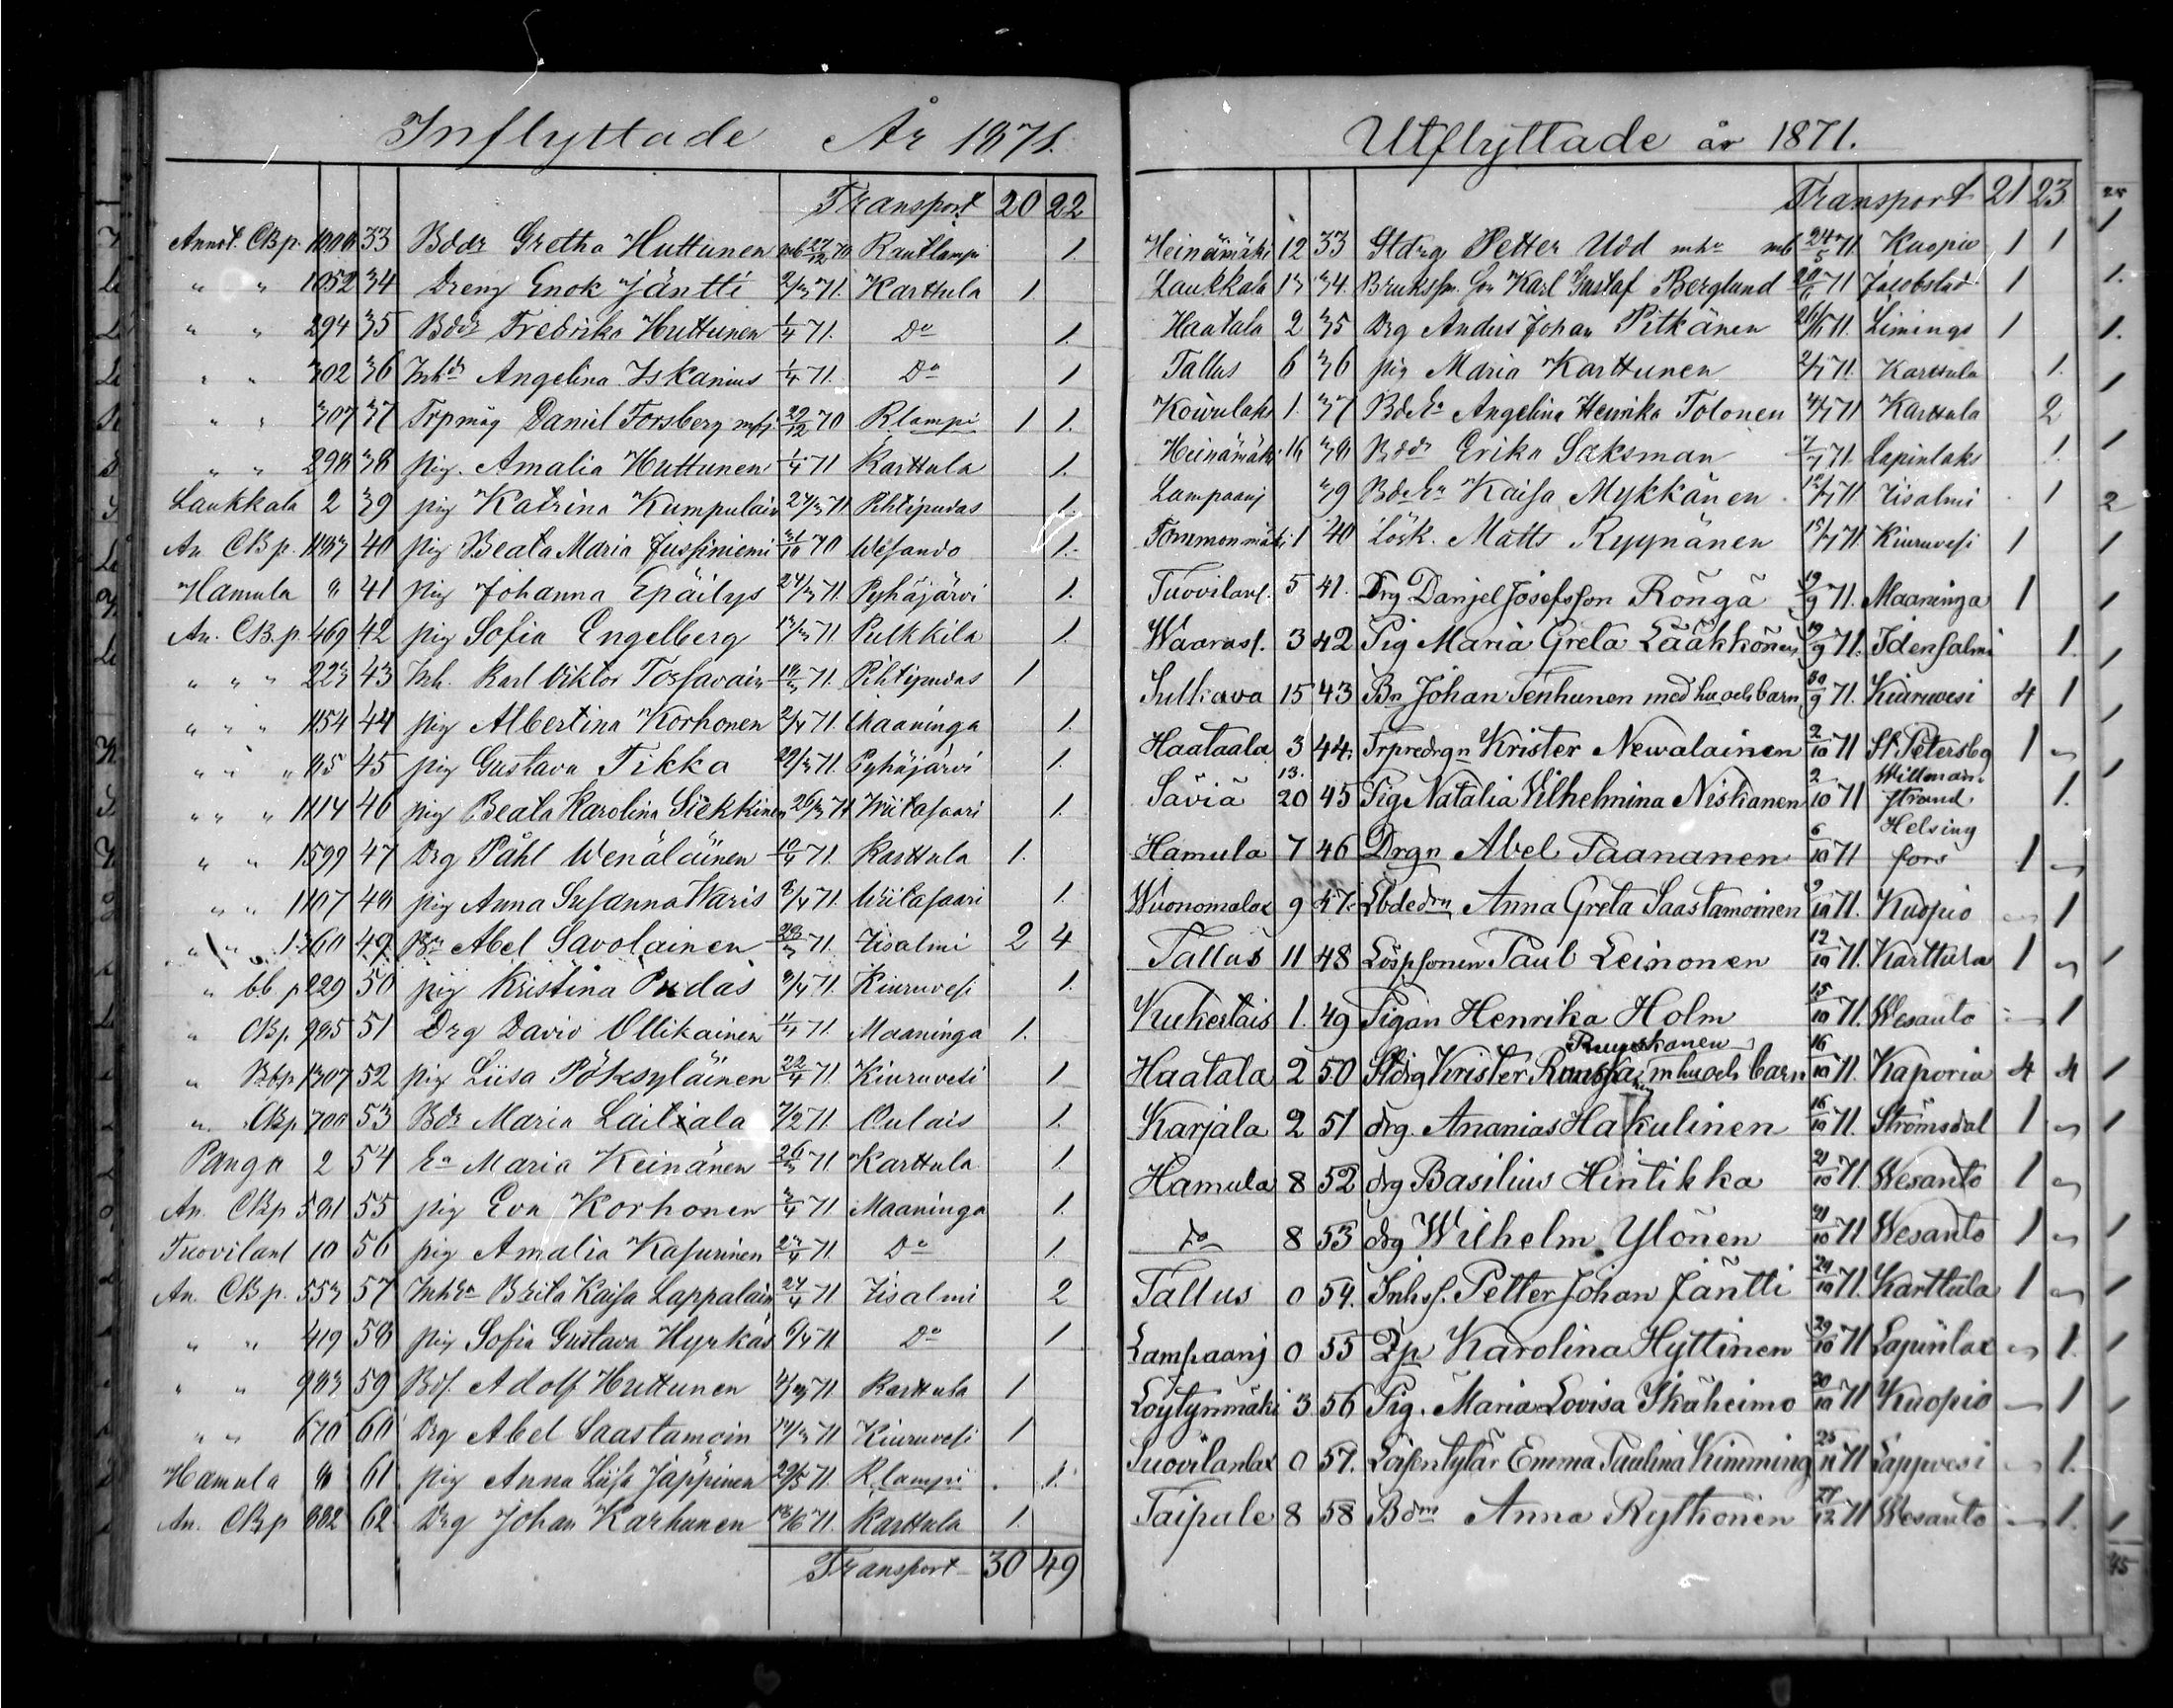 Inflyttade År 1871.
Transport 20 22
Annot. CBp. 1008 33 Bddr Gretha Huttunen mb 27/12 70 Rautlampi 1
" " 1052 34 Dreng Enok Jäntti 2/3 71. Karttula 1.
" " 294 35 Bddr Fredrika Huttunen 1/4 71. Do 1.
" " 302 36 Inhdr Angelina Iskanius 1/4 71. Do 1
" " 307 37 Trpmåg Daniel Forsberg 22/12 70 Rlampi 1 1.
" " 298 38 pig. Amalia Huttunen 1/4 71 Karttula 1.
Laukkala 2 39 pig Katrina Kumpulain 24/3 71 Pihtipudas 1.
An CBp. 1183 40 pig Beata Maria Jussiniemi 31/10 70 Wesando 1.
Hamula 8 41 pig Johanna Epäilys 24/3 71. Pyhäjärvi 1.
An. CBp. 469 42 pig Sofia Engelberg 13/3 71 Pulkkila 1.
" " " 223 43 Inh. Karl Viktor Torsavain 18/3 71. Pihtipudas 1
" " " 1154 44 pig Albertina Korhonen 2/4 71 Maaninga 1.
" " " 115 45 pig Gustava Tikka 22/3 71. Pyhäjärvi 1.
" " " 1114 46 pig Beata Karolina Siekkinen 26/3 71 Wiitasaari 1.
" " 1599 47 Drg Påhl Wenäläinen 10/4 71. Karttula 1.
" " 1107 48 pig Anna Susanna Waris 8/4 71. Wiitasaari 1.
" " 1360 49 Bn Abel Savolainen 28/3 71. Iisalmi 2 4
" bb. p 229 50 pig Kristina Pudas 9/4 71. Kiuruvesi 1.
" CBp. 985 51 Drg David Ollikainen 11/4 71. Maaninga 1.
" Bbp 1307 52 pig Liisa Pöksyläinen 22/4 71. Kiuruvesi 1
" CBp 700 53 Bdr Maria Laitiala 7/2 71. Oulais 1.
Panga 2 54 Ea Maria Keinänen 26/3 71. Karttula 1.
An. CBp 581 55 pig Eva Korhonen 3/4 71 Maaninga 1.
Tuovilanl 10 56 pig Amalia Kasurinen 23/4 71. Do 1.
An. CBp. 553 57 Inhea Brita Kaisa Lappalain 24/4 71 Iisalmi 2
" " 419 58 pig Sofia Gustava Hyrkäs 6/4 71 Do 1
" " 983 59 Bds. Adolf Huttunen 4/3 71 Karttula 1
" " 670 60 Drg Abel Saastamoin 14/3 71 Kiuruvesi 1
Hamula 8 61 pig Anna Liisa Jäppinen 29/5 71. Rlampi 1.
An. CBp 882 62 Drg Johan Karhunen 18/6 71. Karttula 1.
Transport 30 49
Utflyttade år 1871.
Transport 21 23
Heinämäki 12 33 Stdrg Petter Udd mhu mb 24/5 71. Kuopio 1 1
Laukkala 13 34. Bruksp. Son Karl Gustaf Berglund 20/6 71 Jacobstad 1
Haatala 2 35 Drg Anders Johan Pitkänen 26/6 71. Limingo 1
Tallus 6 36 pig Maria Karttunen 2/7 71. Karttula 1.
Koivulaks 1. 37 BdEa Angelina Henrika Tolonen 4/7 71 Karttula 2
Heinämäki 16 38 Bddr Erika Saksman 7/7 71. Lapinlaks 1.
Lampaanj 39 BdEa Kaisa Mykkänen 12/7 71 Iisalmi 1
Tommonmäki 1 40 Lösk. Matts Ryynänen 15/7 71. Kiuruvesi 1
Tuovilanl. 5 41. Drg Danjel Josefsson Röngä 19/9 71. Maaninga 1
Waarasl. 3 42 Pig Maria Greta Lääkkönen 19/9 71. Idensalmi 1.
Sulkava 15 43 Bn Johan Tenhunen med hu och barn 30/9 71. Kiuruvesi 4 1
Haataala 3 44. Trpredrgn Krister Newalainen 2/10 71 St Petersbg 1
Säviä 13. 20 45 Pig Natalia Vilhelmina Niskanen 2/10 71 Willmanstrand 1.
Hamula 7 46 Drgn Abel Paananen 6/10 71 Helsingfors 1
Wuonomalax 9 47. Lbdedrn Anna Greta Saastamoinen 9/10 71. Kuopio 1
Tallus 11 48 Löspsonen Paul Leinonen 12/10 71. Karttula 1
Kukertais 1. 49 Pigan Henrika Holm 15/10 71. Wesanto 1
Ruuskanen
Haatala 2 50 Stdrg Krister m hu och barn 16/10 71. Kaporia 4 4
Karjala 2 51 drg. Ananias Hakulinen 16/10 71. Strömsdal 1
Hamula 8 52 drg Basilius Hintikka 21/10 71. Wesanto 1
Do 8 53 drg Wilhelm Ylönen 21/10 71 Wesanto 1
Tallus 0 54. Inhs. Petter Johan Jäntti 29/10 71. Karttula 1
Lampaanj 0 55 Karolina Hyttinen 29/10 71 Lapinlax 1.
Löytynmäki 3 56 Pig. Maria Lovisa Ikäheimo 30/10 71 Kuopio 1
Tuovilanlax 0 57. Emma Paulina Kimming 25/11 71 Lappvesi 1.
Taipale 8 58 Bdm Anna Rytkönen 27/12 71 Wesanto 1.